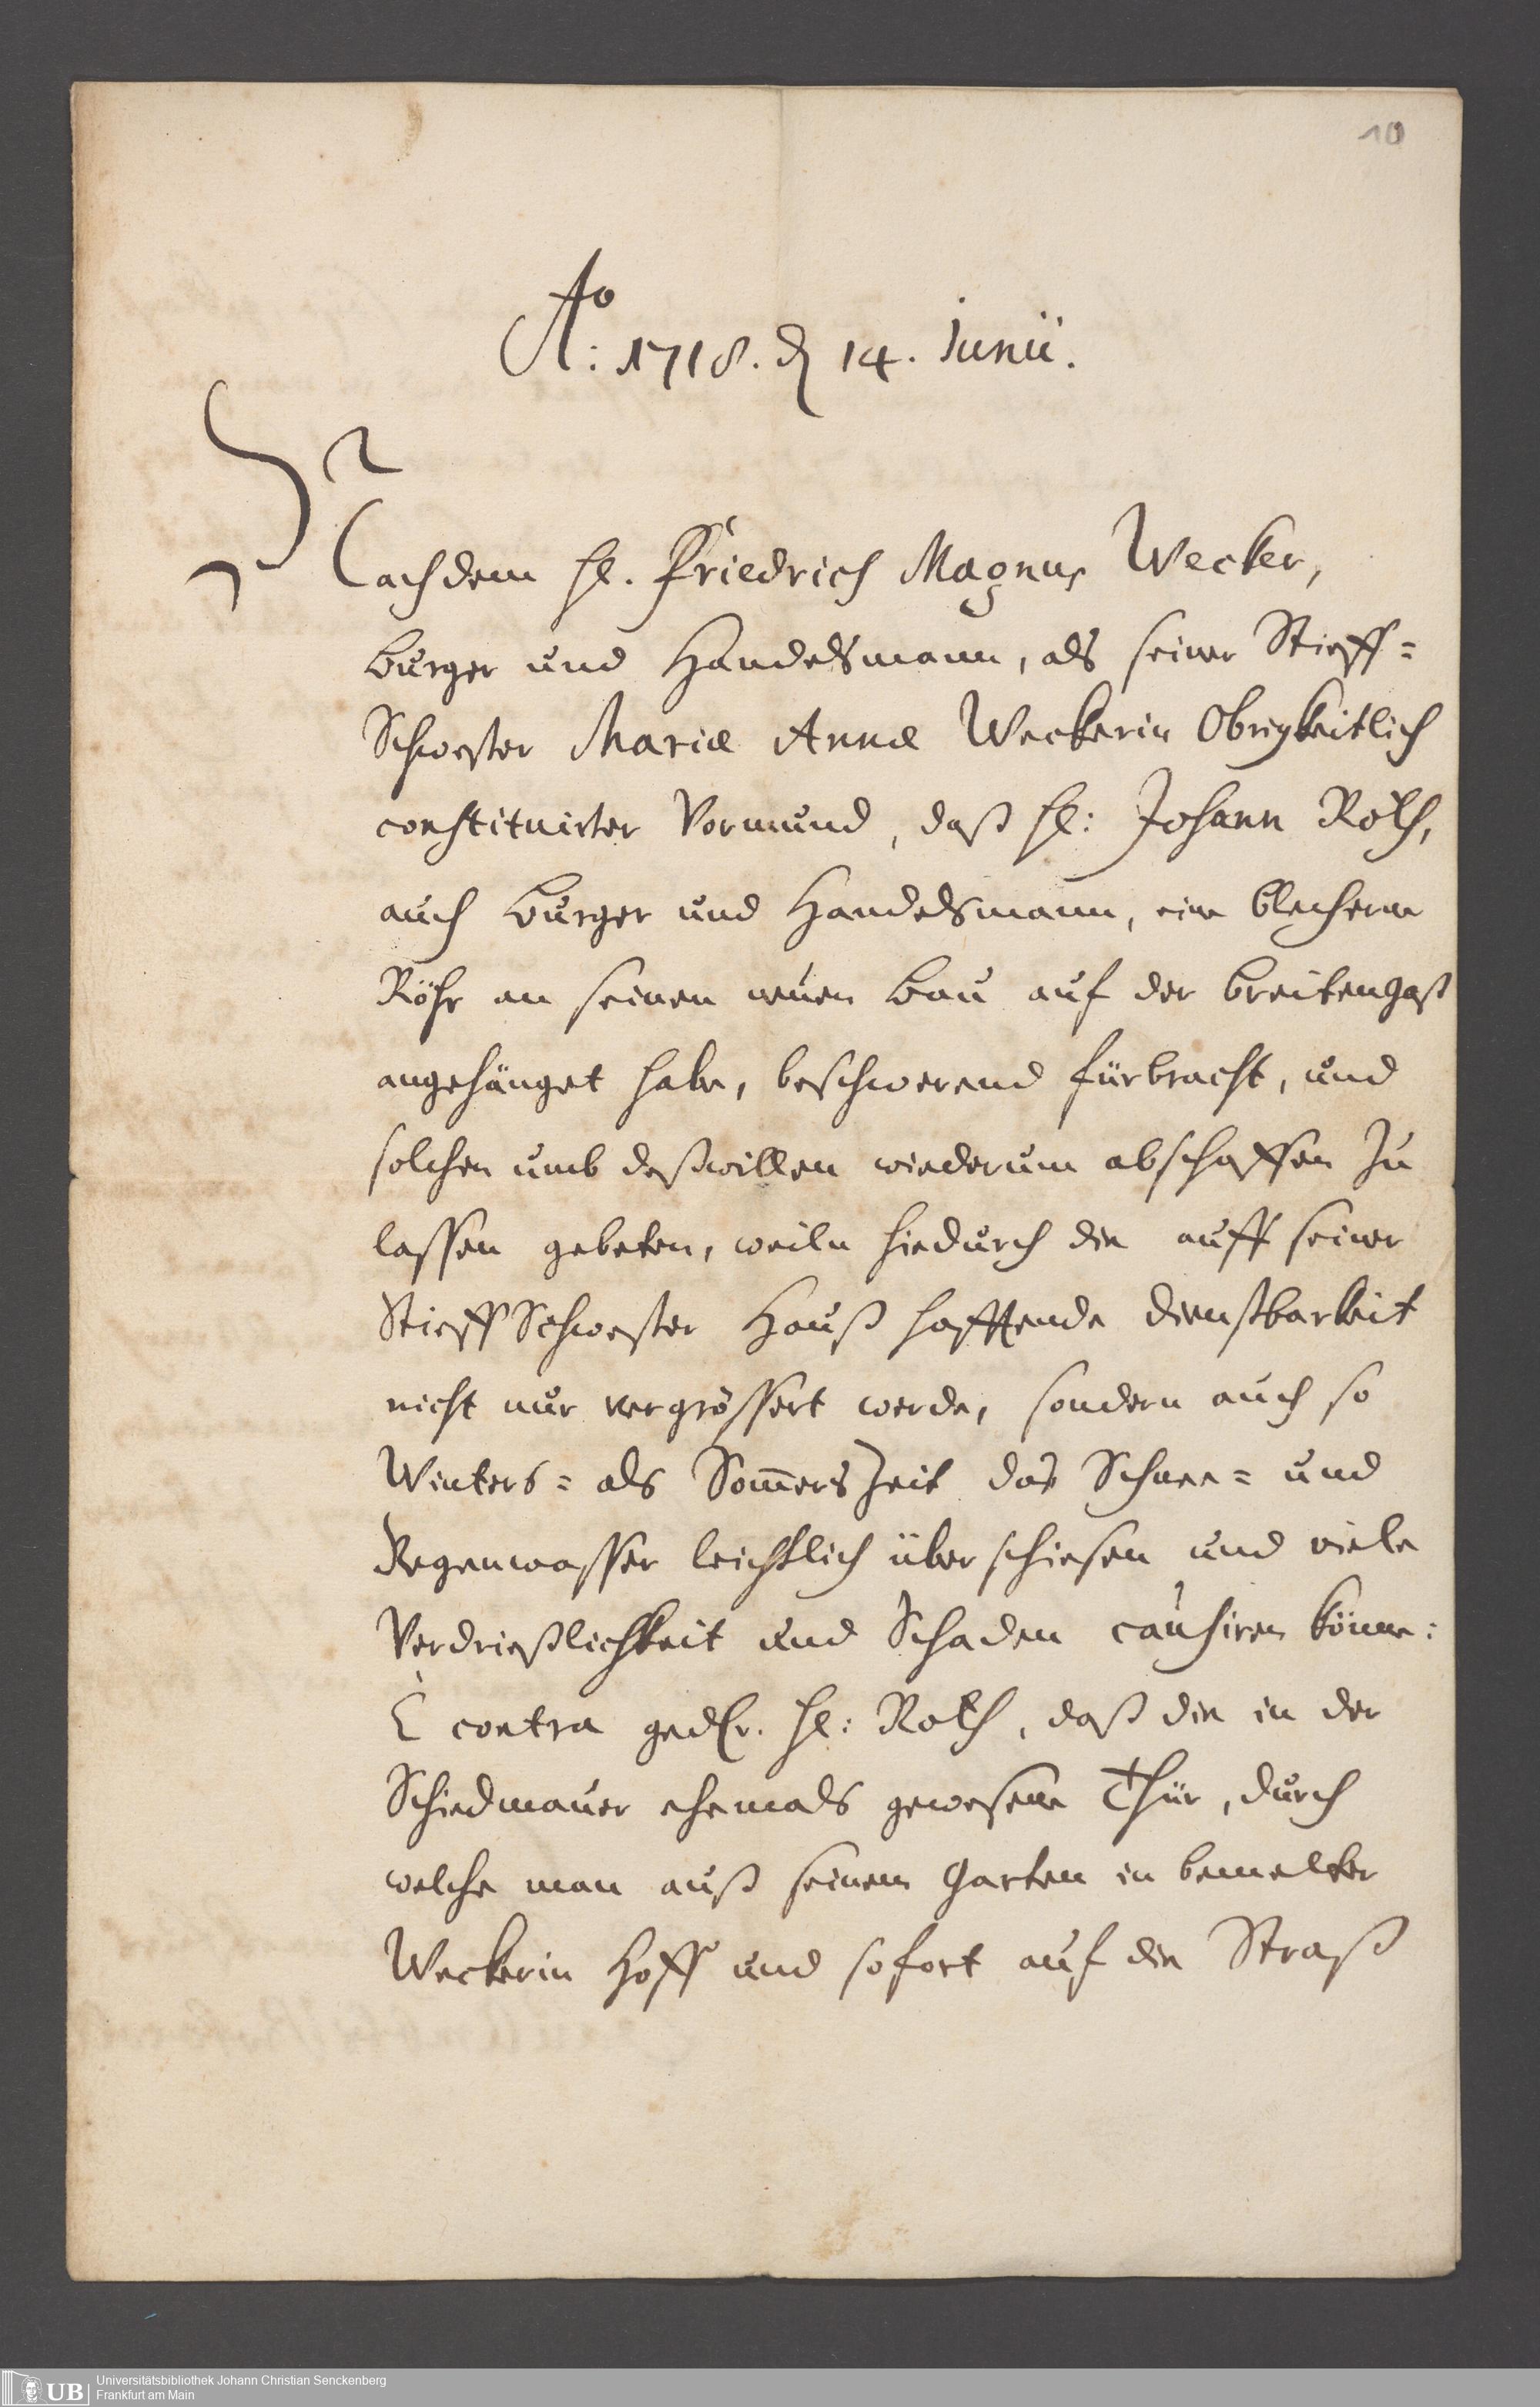 10
Ao: 1718. d 14. Junii.
Nachdem H. Friedrich Magnus Wecker,
burger und Handelsmann, als seiner Stieff=
Schwester Mariæ Annæ Weckerin Obrigkeitlich
constituirter Vormund, daß H: Johann Roth,
auch burger und Handelsmann, eine blecherne
Röhr an seinen neuen bau auf der breitengaß
angehänget habe, beschwerend fürbracht, und
solchen umb deßwillen wiederum abschaffen zu
lassen gebeten, weiln hiedurch die auff seiner
Stieff Schwester Hauß hafftende dienstbarkeit
nicht nur vergrössert werde, sondern auch so
Winters= als Som̄ers Zeit das Schnee= und
Regenwasser leichtlich über schiesen und viele
Verdrießlichkeit und Schaden causiren könne:
È contra gedr. H: Roth, daß die in der
Schiedmauer ehemals gewesene Thür, durch
welche man auß seinem Garten in bemelter
Weckerin Hoff und sofort auf die Straß
UB
Universitätsbibliothek Johann Christian Senckenberg
Frankfurt am Main